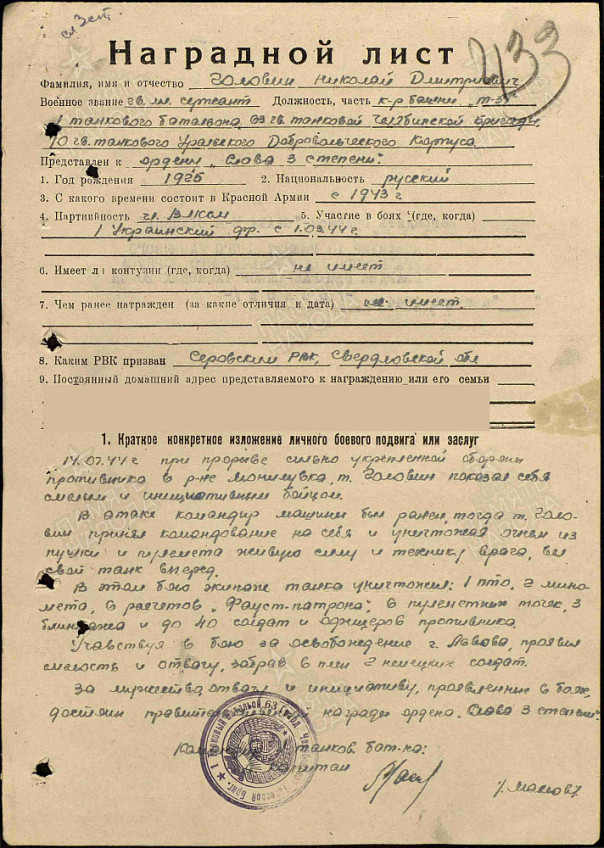 сл 3ст.
433
Наградной лист
Фамилия, имя и отчество Головин Николай Дмитриевич
Военное звание гв. мл. сержант Должность, часть к-р башни „Т-34"
1 танкового батальона, 63 гв. танковой Челябинской бригады
10 гв. танкового Уральского Добровольческого Корпуса
Представлен к ордену „Слава 3 степени".
1. Год рождения 1925 2. Национальность русский
3. С какого времени состоит в Красной Армии с 1943 г
4. Партийность чл. ВЛКСМ 5. Участие в боях (где, когда)
1 Украинский фр. с 1.03.44 г.
6. Имеет ли контузии (где, когда) не имеет
7. Чем ранее награжден (за какие отличия и дата) не имеет.
8. Каким РВК призван Серовским РВК, Свердловской обл
9. Постоянный домашний адрес представляемого к награждению или его семьи
1. Краткое конкретное изложение личного боевого подвига или заслуг
14.07.44 г при прорыве сильно укрепленной обороны
противника в р-не т. Головин показал себя
смелым и инициативным бойцом.
В атаке командир машины был ранен, тогда т. Голо-
вин принял командование на себя и уничтожая огнем из
пушки и пулемета живую силу и технику врага, вел
свой танк вперед.
В этом бою экипаж танка уничтожил: 1 пто, 2 мино-
мета, 6 расчетов „Фауст-патрона", 6 пулеметных точек, 3
блиндажа и до 40 солдат и офицеров противника.
Участвуя в бою за освобождение г. Львова, проявил
смелость и отвагу, забрав в плен 2 немецких солдат.
За мужество, отвагу и инициативу, проявленные в боях,
достоин награды ордена „Слава 3 степени".
танков. бат-на:
Капитан